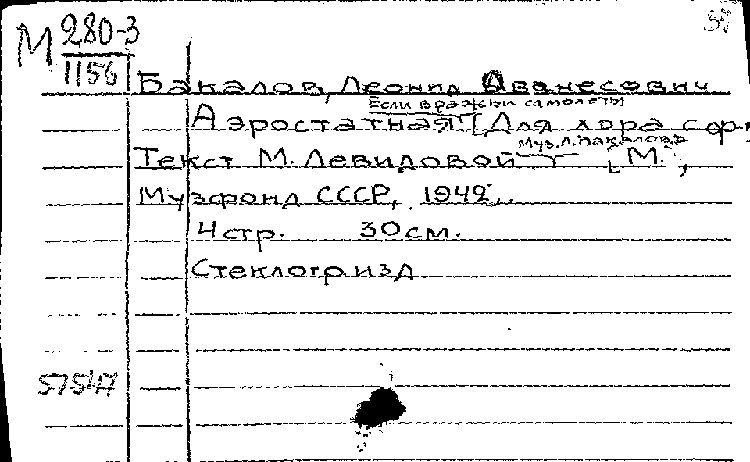 М 280-3
1156
Бакалов, Леонид Аванесович
Если вражьи самолеты
Аэростатная. [Для хора с ф-
Муз. Л. Бакалова
Текст М. Левидовой [М.],
Музфонд СССР, 1942.
4 стр. 30 см.
Стеклогр. изд.